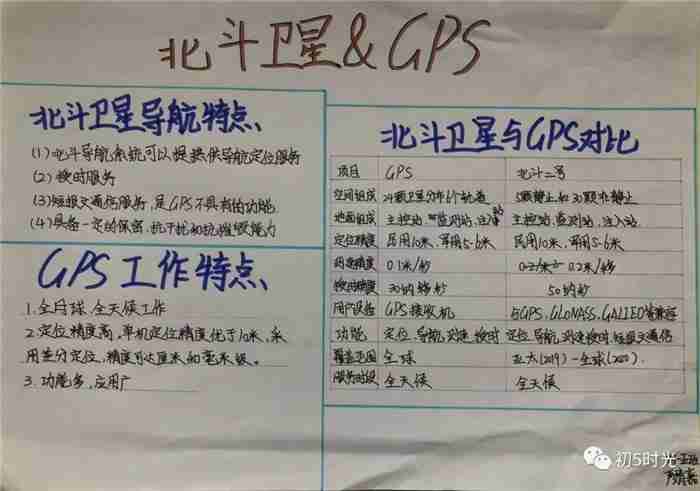 北斗卫星&GPS
北斗卫星导航特点、
(1)北斗导航系统可以提供导航定位服务
(2)授时服务
(3)短报文通信服务，是GPS不具有的功能
(4)具备一定的保留，抗干扰和抗摧毁能力
GPS工作特点、
1.全球，全天候工作
2.定位精度高，单机定位精度优于10米，采
用差分定位，精度可达厘米和毫米级。
3.功能多，应用广
北斗卫星与GPS对比
项目 GPS 北斗二号
空间组成 24颗卫星分布6个轨道 5颗静止和30颗非静止
地面组成 主控站 监测站，注入站 主控站，监测站，注入站
定位精度 民用10米，军用5-6米 民用10米，军用5-6米
测速精度 0.1米/秒 0.2米/秒
授时精度 20纳秒 50纳秒
用户设备 GPS接收机 与GPS、GLONASS、GALIEO等兼容
功能 定位、导航、测速、授时 定位、导航、测速、授时、短报文通信
覆盖范围 全球 亚太(2019)-全球(2020).
服务时段 全天候 全天候
初5时光